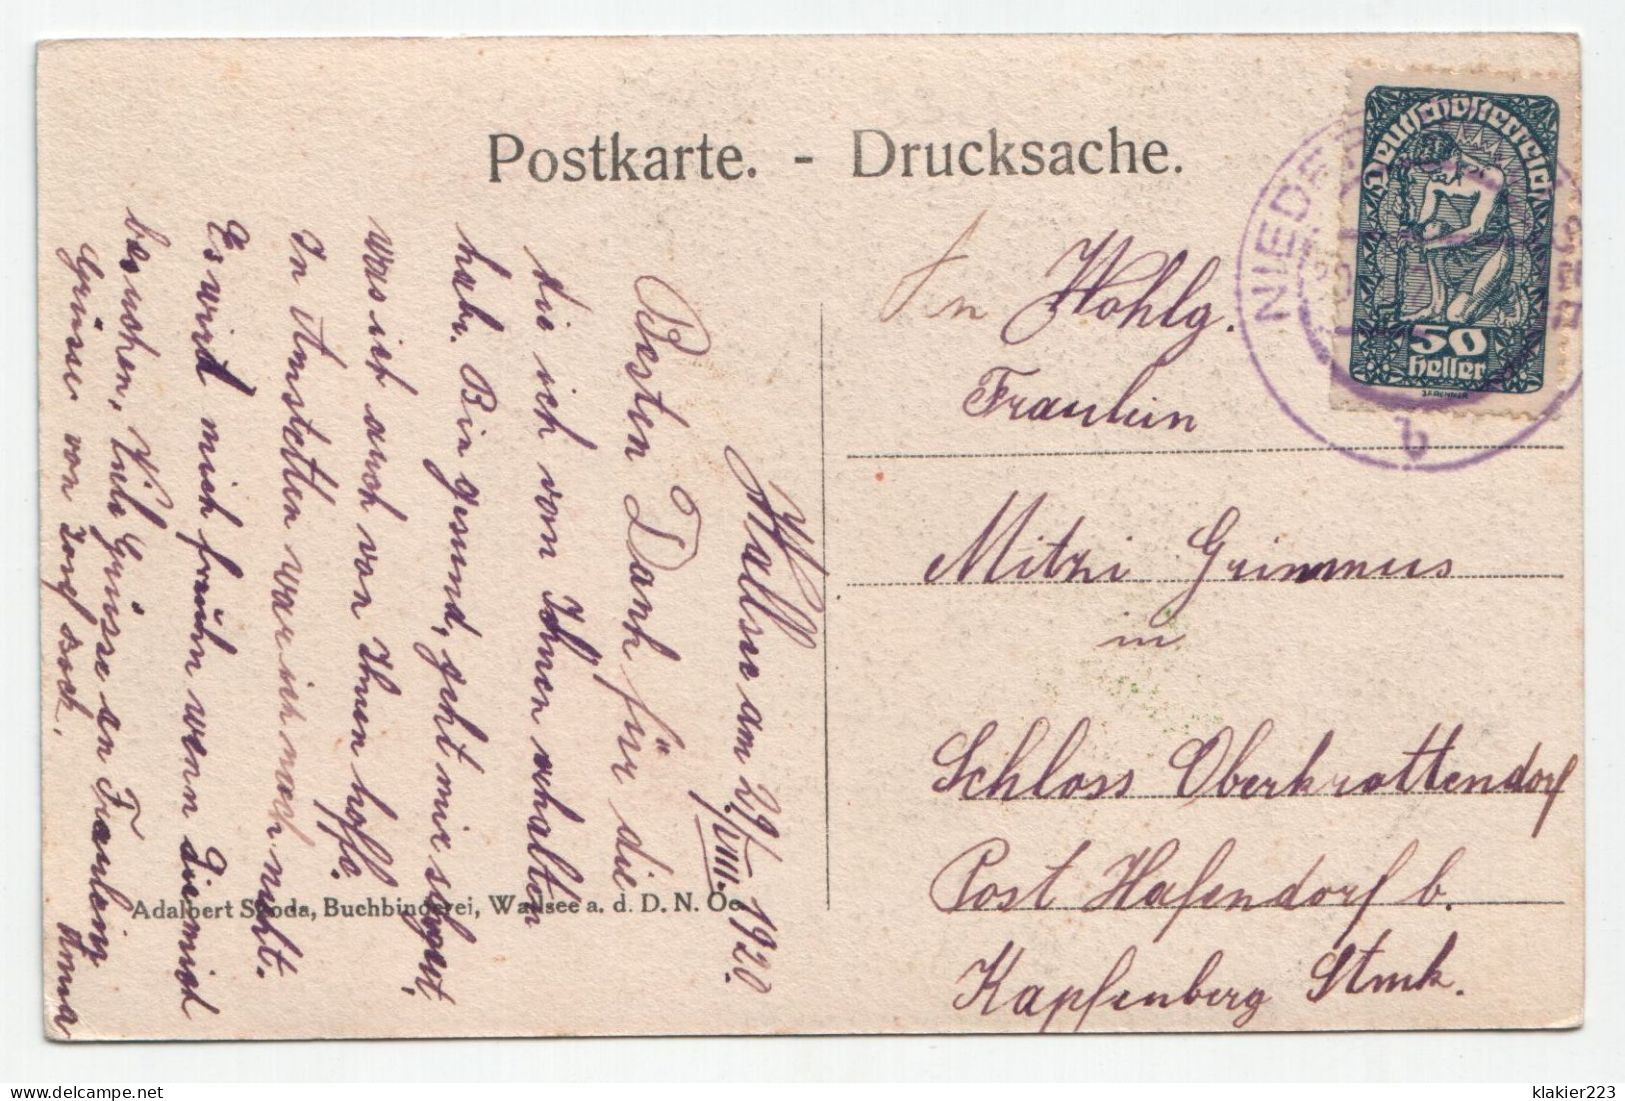 Postkarte. - Drucksache.
Deutschösterreich
50
heller
NIEDER
b
An Wohlg.
Fraulein
Mitzi Grimmus
in
Schloss Oberkrottendorf
Post Hafendorf b.
Kapfenberg Stmk.
Wallsee am 29/VIII. 1920.
Besten Dank für die
die ich von Ihnen erhalten
habe. Bin gesund, geht mir sehr gut,
was ich auch von Ihnen hoffe.
In Amstetten war ich noch nicht.
Es wird mich freuhn wenn Sie mich
besuchen. Viele Grüsse an Fraulein Anna
Grüsse von Josef Bock.
Adalbert Skoda, Buchbinderei, Wallsee a. d. D. N. Oe.
klakier223